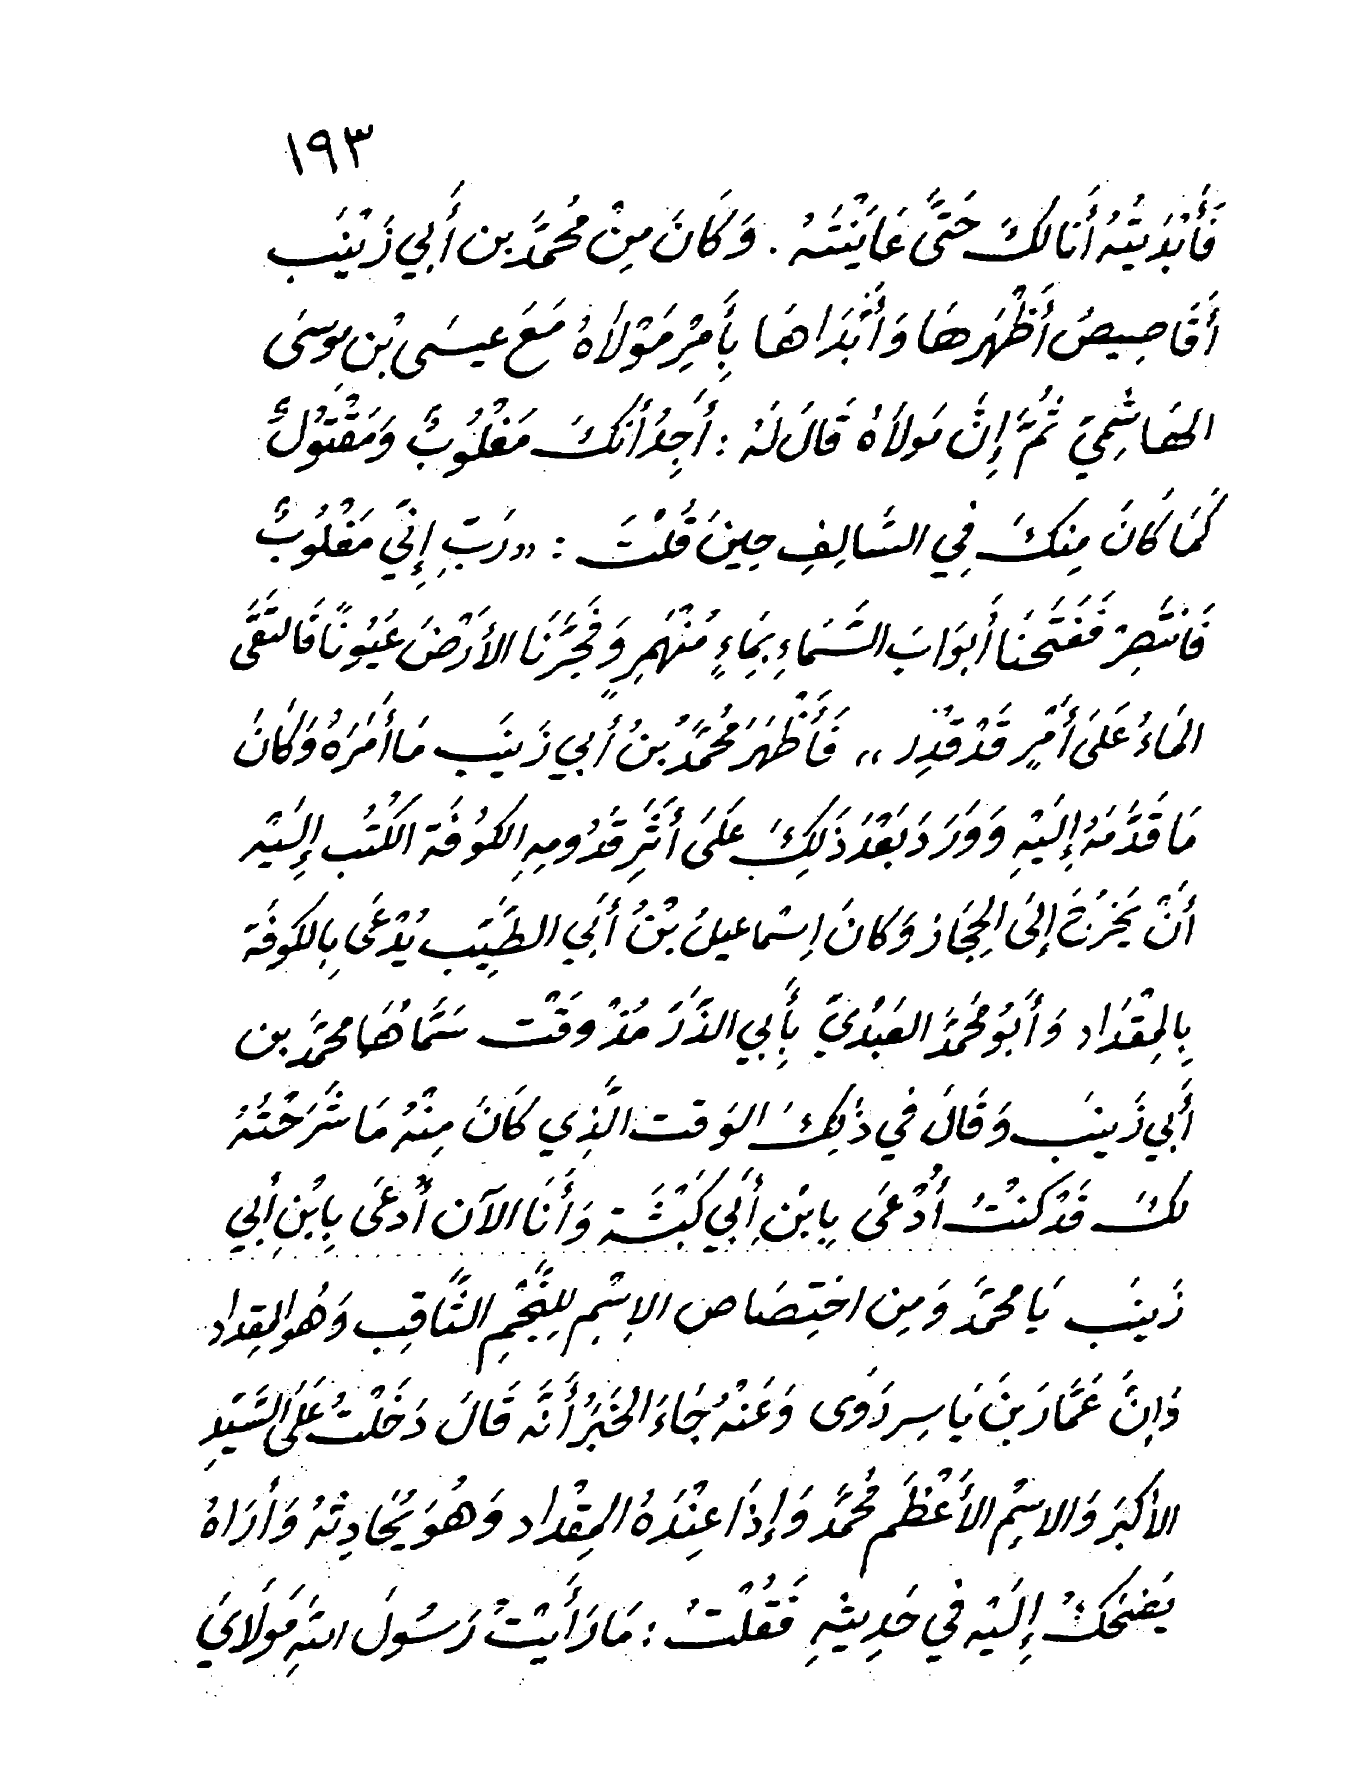 ١٩٣
فَأَبْدَيْتُهُ أَنَا لَكَ حَتَّى عَايَنْتَهُ . وَكَانَ مِنْ مُحَمَّدِ بن أَبِي زَيْنَب
أَقَاصِيصُ أَظْهَرهَا وَأَبْدَاهَا بِأَمِرْ مَوْلَاهُ مَعَ عيسَى بْن موسَى
الهَاشِمِيّ ثُمَّ إِنَّ مَولَاهُ قَالَ لَهُ : أَجِدُ أَنَكَ مَغْلُوبٌ وَمَقْتُولٌ
كَمَا كَانَ مِنكَ فِي السَّالِفِ حِينَ قُلْتَ : «رَبِّ إِنِّي مَغْلُوبٌ
فَانتَصِرْ فَفَتَحْنَا أَبوَابَ السَّمَاءِ بِمَاءٍ مُنْهَمِرٍ وَفَجَّرْنَا الأرَضَ عُيُونًا فَالتَقَى
الَماءُ عَلَى أَمْرٍ قَدْ قُدِر» فَأَظْهَرَ مُحَمَّدُ بنُ أَبي زَينَب مَا أَمَرَهُ وَكَانَ
مَا قَدَّمَهُ إِلَيْهِ وَوَرَدَ بَعْدَ ذَلِكَ عَلَى أَثَرِ قُدُومِهِ الكوُفَة الكُتُب إِلَيْهِ
أَنْ يَخْرُجَ إِلَى الحِجَاز وَكَانَ إِسْمَاعيلُ بْنُ أَبِي الطَّيِّب يُدْعَى بِالكوفَة
بِالمِقْدَاد وَأَبُو مُحَمَّد العَبْدِيّ بِأَبِي الذَّرَ مُذْ وَقْت سَمَّاهُمَا محَمَّد بن
أَبِي زَينَب وَقَالَ في ذَلِكَ الوَقت الَّذِي كَانَ مِنْهُ مَا شَرَحْتُهُ
لَكَ قَدْ كنتُ أُدْعَى بِابْن أَبِي كَبْشَة وَأَنَا الآن أُدعَى بِابْنِ أبي
زَينَب يَا محَمَّد وَمِن اختِصَاص الإسْمِ لِلنَّجْمِ الثَّاقِب وَهُو المِقدَاد
وَإنَّ عَمَّارَ بنَ يَاسِر رَوَى وَعَنْهُ جَاءَ الخَبَرُ أَنَّه قَالَ دَخَلْتُ عَلَى السَّيِّدِ
الأَكبَر وَالاسْمِ الأَعْظَم مُحَمَّد وَإِذَا عِنْدَهُ المِقْدَاد وَهُوَ يُحَادِثهُ وَأَرَاهُ
يَضحَكُ إِلَيْه في حَدِيثِهِ فَقُلْتُ : مَا رَأَيْتُ رَسُولَ اللهِ مَولَايَ